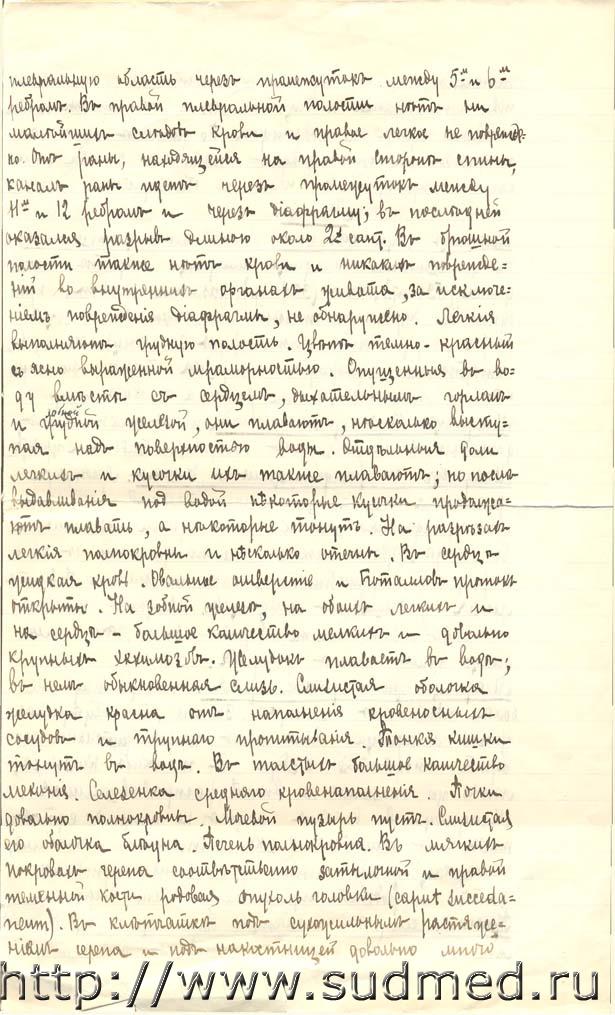 плевральную область черезъ промежутокъ между 5-м и 6-м
ребромъ. Въ правой плевральной полости нѣтъ ни
малѣйшихъ слѣдовъ крови и правое легкое не поврежде-
но. Отъ раны, находящейся на правой сторонѣ спины,
каналъ раны идетъ черезъ промежутокъ между
11-м и 12 ребромъ и черезъ діафрагму; въ послѣдней
оказался разрывъ длиною около 2х сант. Въ брюшной
полости также нѣтъ крови и никакихъ поврежде=
ній во внутреннихъ органахъ живота, за исключе=
ніемъ поврежденія діафрагмы, не обнаружено. Легкія
выполняютъ грудную полость. Цвѣтъ темно-красный
съ ясно выраженной мраморностью. Опущенныя въ во-
ду вмѣстѣ съ сердцемъ, дыхательнымъ горломъ
и зобной желѣзой, они плаваютъ, нѣсколько высту-
пая надъ поверхностью воды. Отдѣльныя доли
легкихъ и кусочки ихъ также плаваютъ; но послѣ
выдавливанія подъ водой нѣкоторые кусочки продолжа-
ютъ плавать, а нѣкоторые тонутъ. На разрѣзахъ
легкія полнокровны и нѣсколько отечны. Въ сердцѣ
жидкая кровь. Овальное отверстіе и Боталловъ протокъ
открыты. На зобной железѣ, на обоихъ легкихъ и
на сердцѣ - большое количество мелкихъ и довольно
крупныхъ экхимозовъ. Желудокъ плаваетъ въ водѣ;
въ немъ обыкновенная слизь. Слизистая оболочка
желудка красна отъ наполненія кровеносныхъ
сосудовъ и трупнаго пропитыванія. Тонкія кишки
тонутъ въ водѣ. Въ толстыхъ большое количество
меконія. Селезенка средняго кровенаполненія. Почки
довольно полнокровны. Мочевой пузырь пустъ. Слизистая
его оболочка блѣдна. Печень полнокровна. Въ мягкихъ
покровахъ черепа соотвѣтственно затылочной и правой
теменной кости родовая опухоль головки (caput succeda-
neum). Въ клѣтчаткѣ подъ сухожильнымъ растяже=
ніемъ черепа и подъ накостницей довольно много
http://www.sudmed.ru